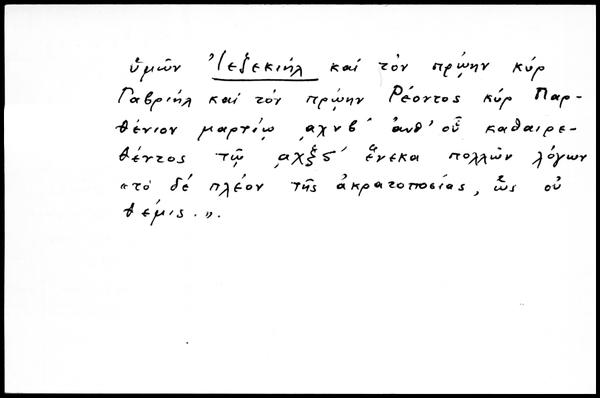 ὑμῶν Ἰεζεκιήλ καί τόν πρώην κύρ
Γαβριήλ καί τόν πρώην Ρέοντος κύρ Παρ-
θένιον μαρτίῳ ͵αχνβ´ ἀνθ' οὗ καθαιρε-
θέντος τῷ ͵αχξδ´ ἕνεκα πολλῶν λόγων
«τό δέ πλέον τῆς ἀκρατοποσίας, ὡς οὐ
θέμις.».